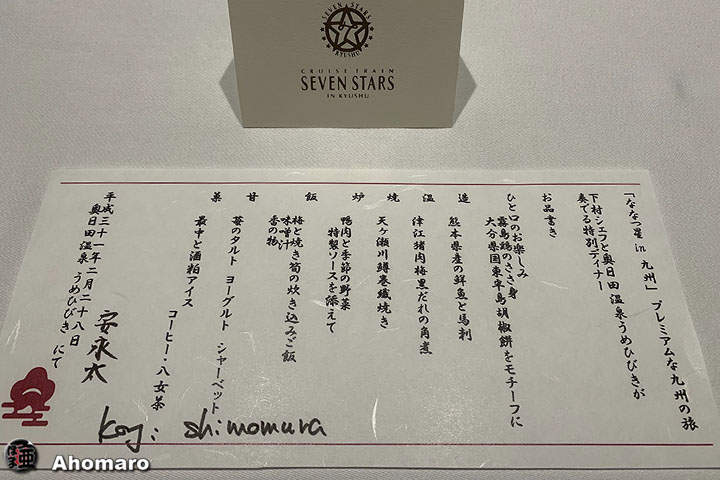 SEVEN STARS
KYUSHU
CRUISE TRAIN
SEVEN STARS
IN KYUSHU
「ななつ星 in 九州」プレミアムな九州の旅
下村シェフと奥日田温泉うめひびきが
奏でる特別ディナー
お品書き
ひと口のお楽しみ
霧島鶏のささ身
大分県国東半島胡椒餅をモチーフに
造 熊本県産の鮮魚と馬刺
温 津江猪肉梅黒だれの角煮
焼 天ヶ瀬川鱒巻繊焼き
炉 鴨肉と季節の野菜
特製ソースを添えて
飯 梅と焼き筍の炊き込みご飯
味噌汁
香の物
甘 苺のタルト ヨーグルト シャーベット
菓 最中と酒粕アイス コーヒー・八女茶
平成三十一年二月二十八日
奥日田温泉 うめひびき にて
安永太
Koji Shimomura
Ahomaro